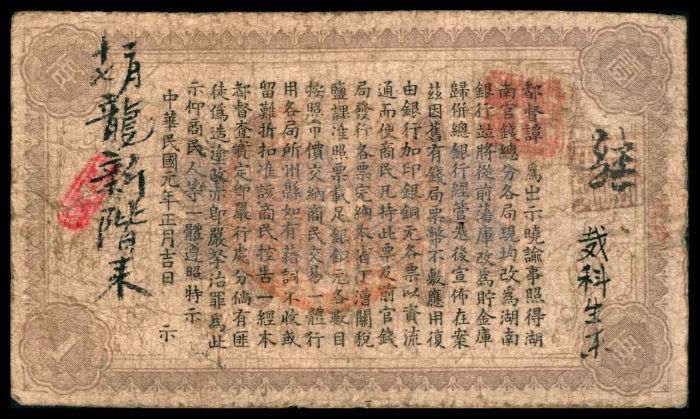 都督譚 爲出示曉諭事照得湖
南官錢總分各局現均改爲湖南
銀行並將從前藩庫改爲貯金庫
歸併總銀行經管是後宣佈在案
茲因舊有錢局票幣不敷應用復
由銀行加印銀銅元各票以資流
通而便商民凡持此票及前官錢
局發行各票完納本省丁漕關稅
鹽課准照票載足銀銅元各數目
按照市價交納商民交易一體行
用各局所州縣如有藉詞不收或
留難折扣准該商民控告一經本
都督查實定即嚴行處分倘有匪
徒僞造塗改亦即嚴拏治罪爲此
示仰商民人等一體遵照特示
中華民國元年正月吉日 示
龍新階来